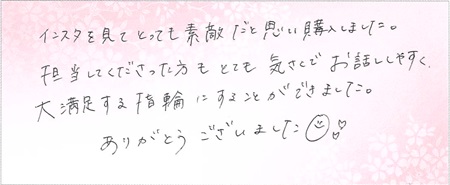 インスタを見てとっても素敵だと思い購入しました。
担当してくださった方もとても気さくでお話ししやすく、
大満足する指輪にすることができました。
ありがとうございました